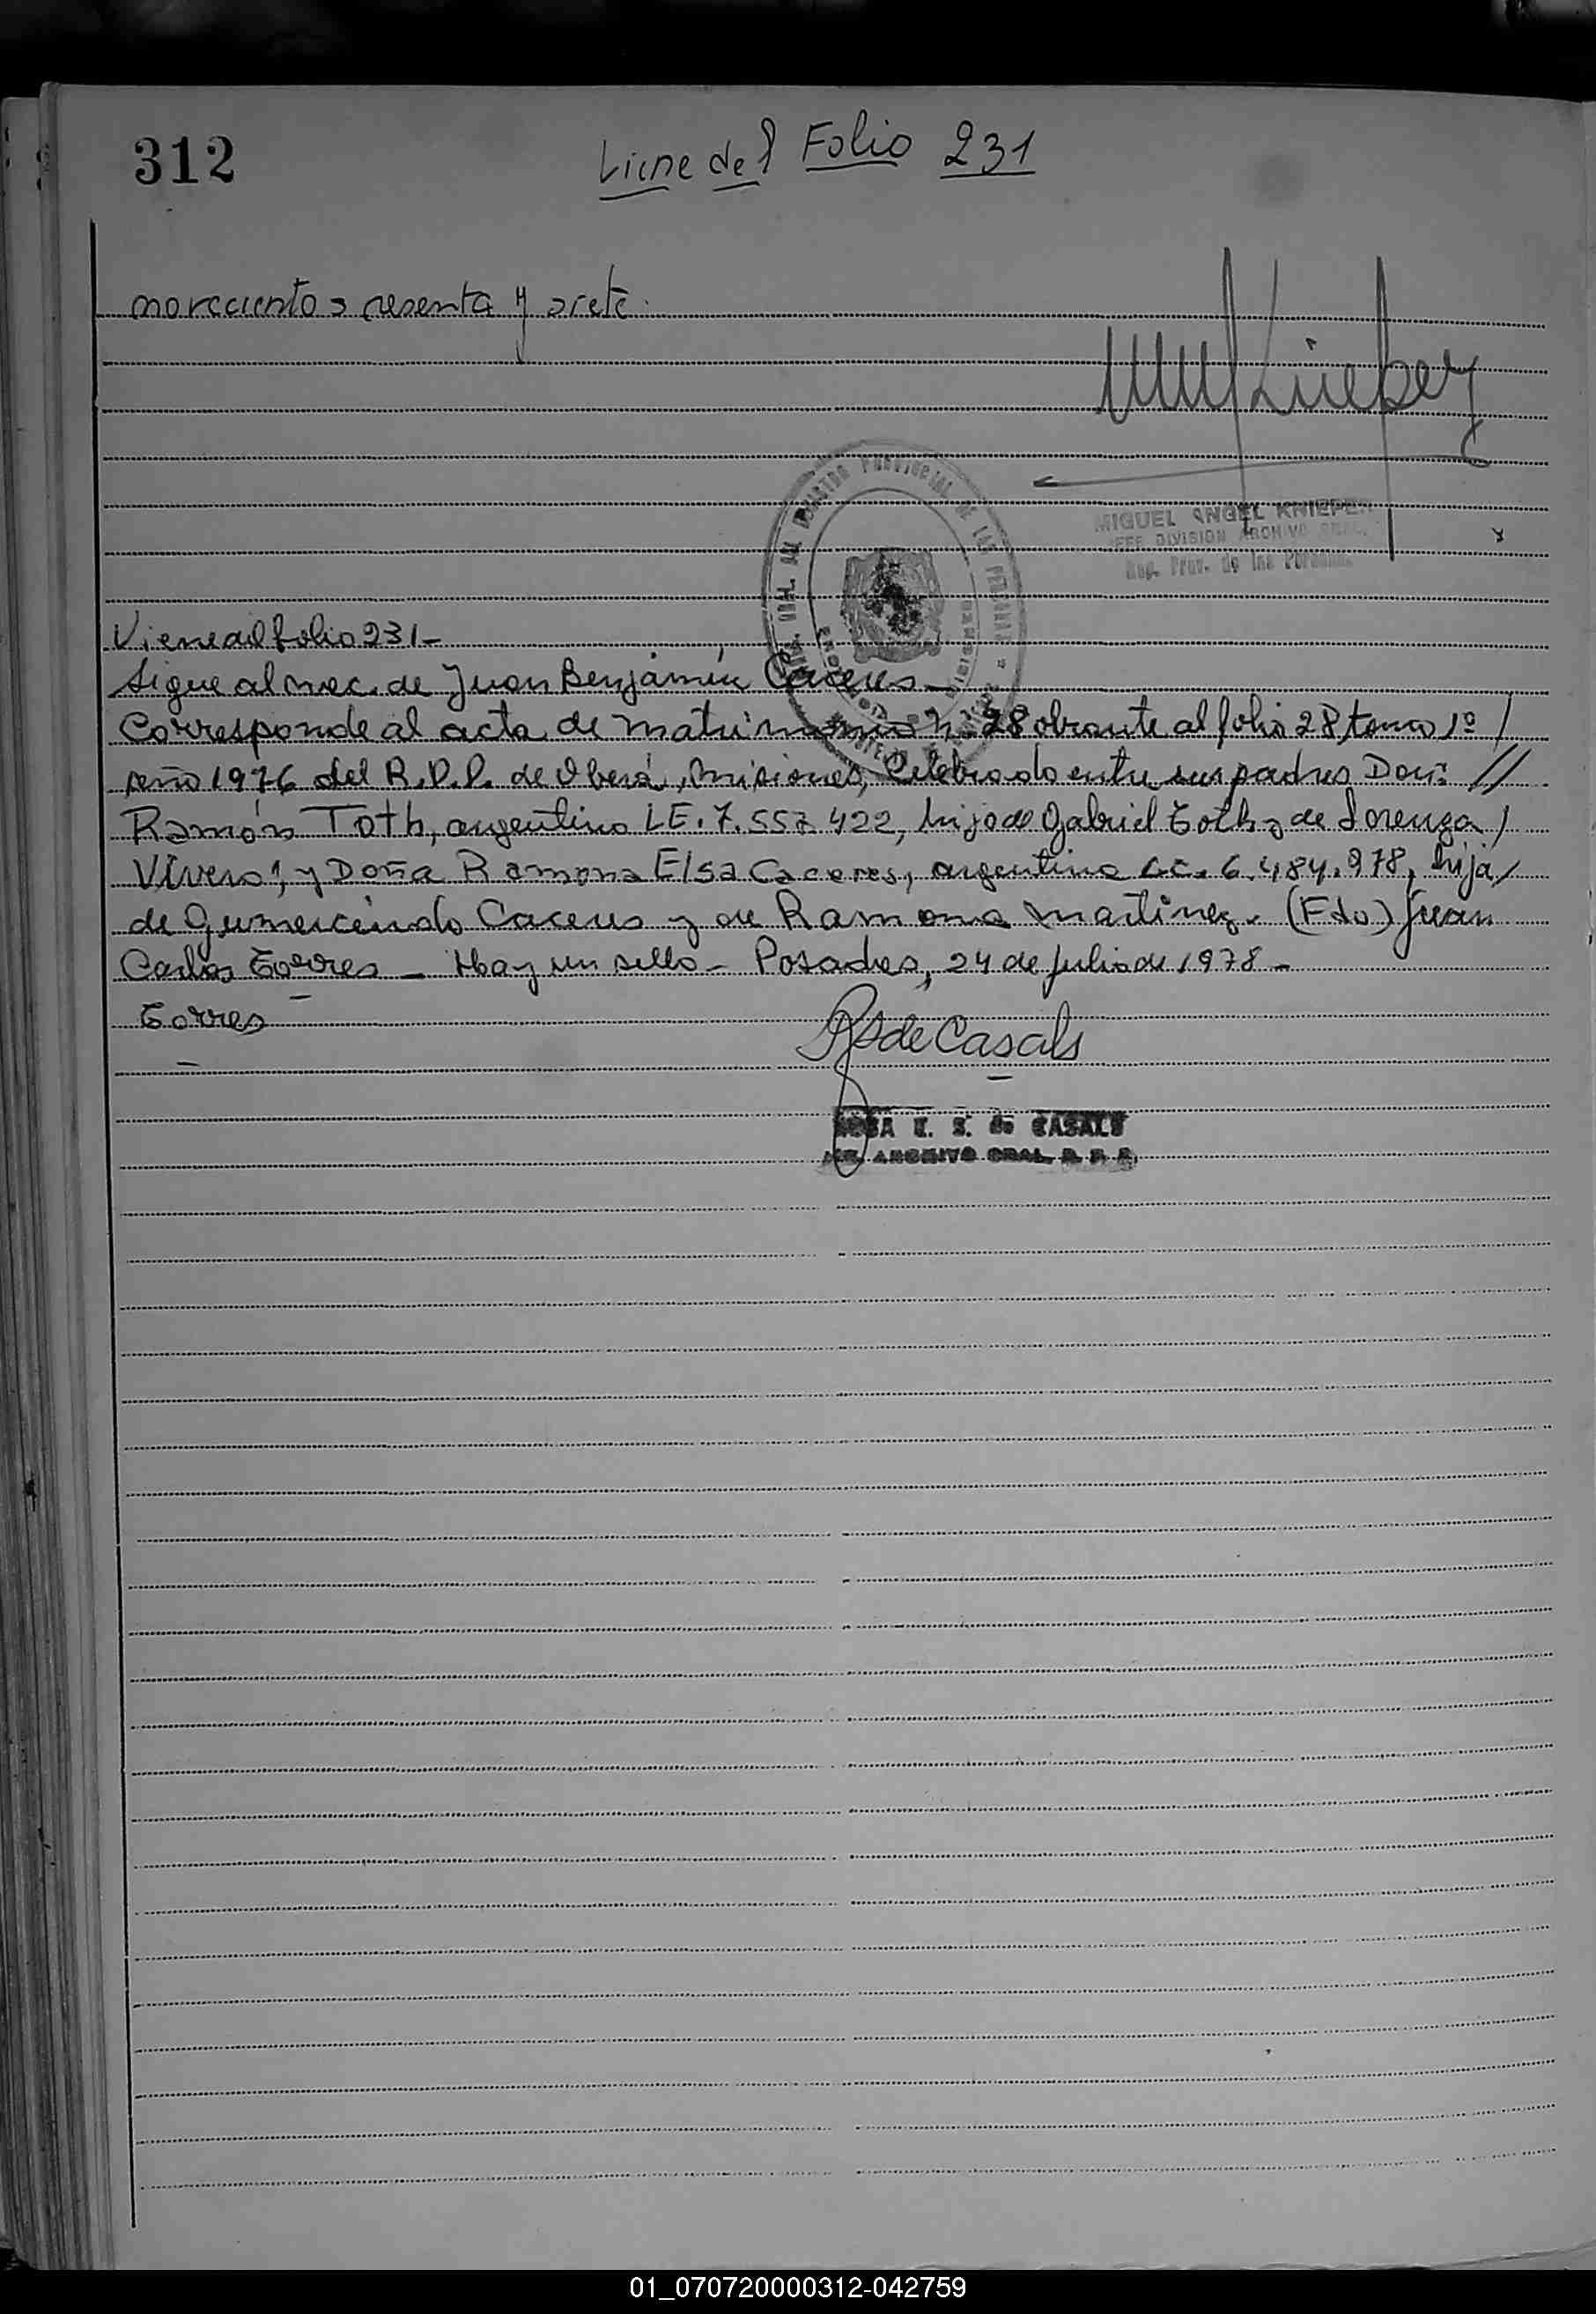 312
Viene del Folio 231
novecientos sesenta y siete.
MIGUEL ANGEL KNIEPER
JEFE DIVISION ARCHIVO GRAL.
Reg. Prov. de las Personas
Viene del folio 231-
Sigue al nac. de Juan Benjamín Caceres-
Corresponde al acta de matrimonio nº 28 obrante al folio 28, tomo 1º /
año 1976 del R.P.P. de Oberá, Misiones, Celebrado entre sus padres Don: //
Ramón Toth, argentino LE. 7.557.422, hijo de Gabriel Toth y de Lorenza /
Vivero, y Doña Ramona Elsa Caceres, argentina LC. 6.484.978, hija /
de Gumercindo Caceres y de Ramona Martinez. (Fdo) Juan
Carlos Torres - Hay un sello - Posadas, 24 de julio de 1978 -
Torres
RS de Casals
ROSA E. S. de CASALS
ARCHIVO GRAL. R. P. P.
01_070720000312-042759